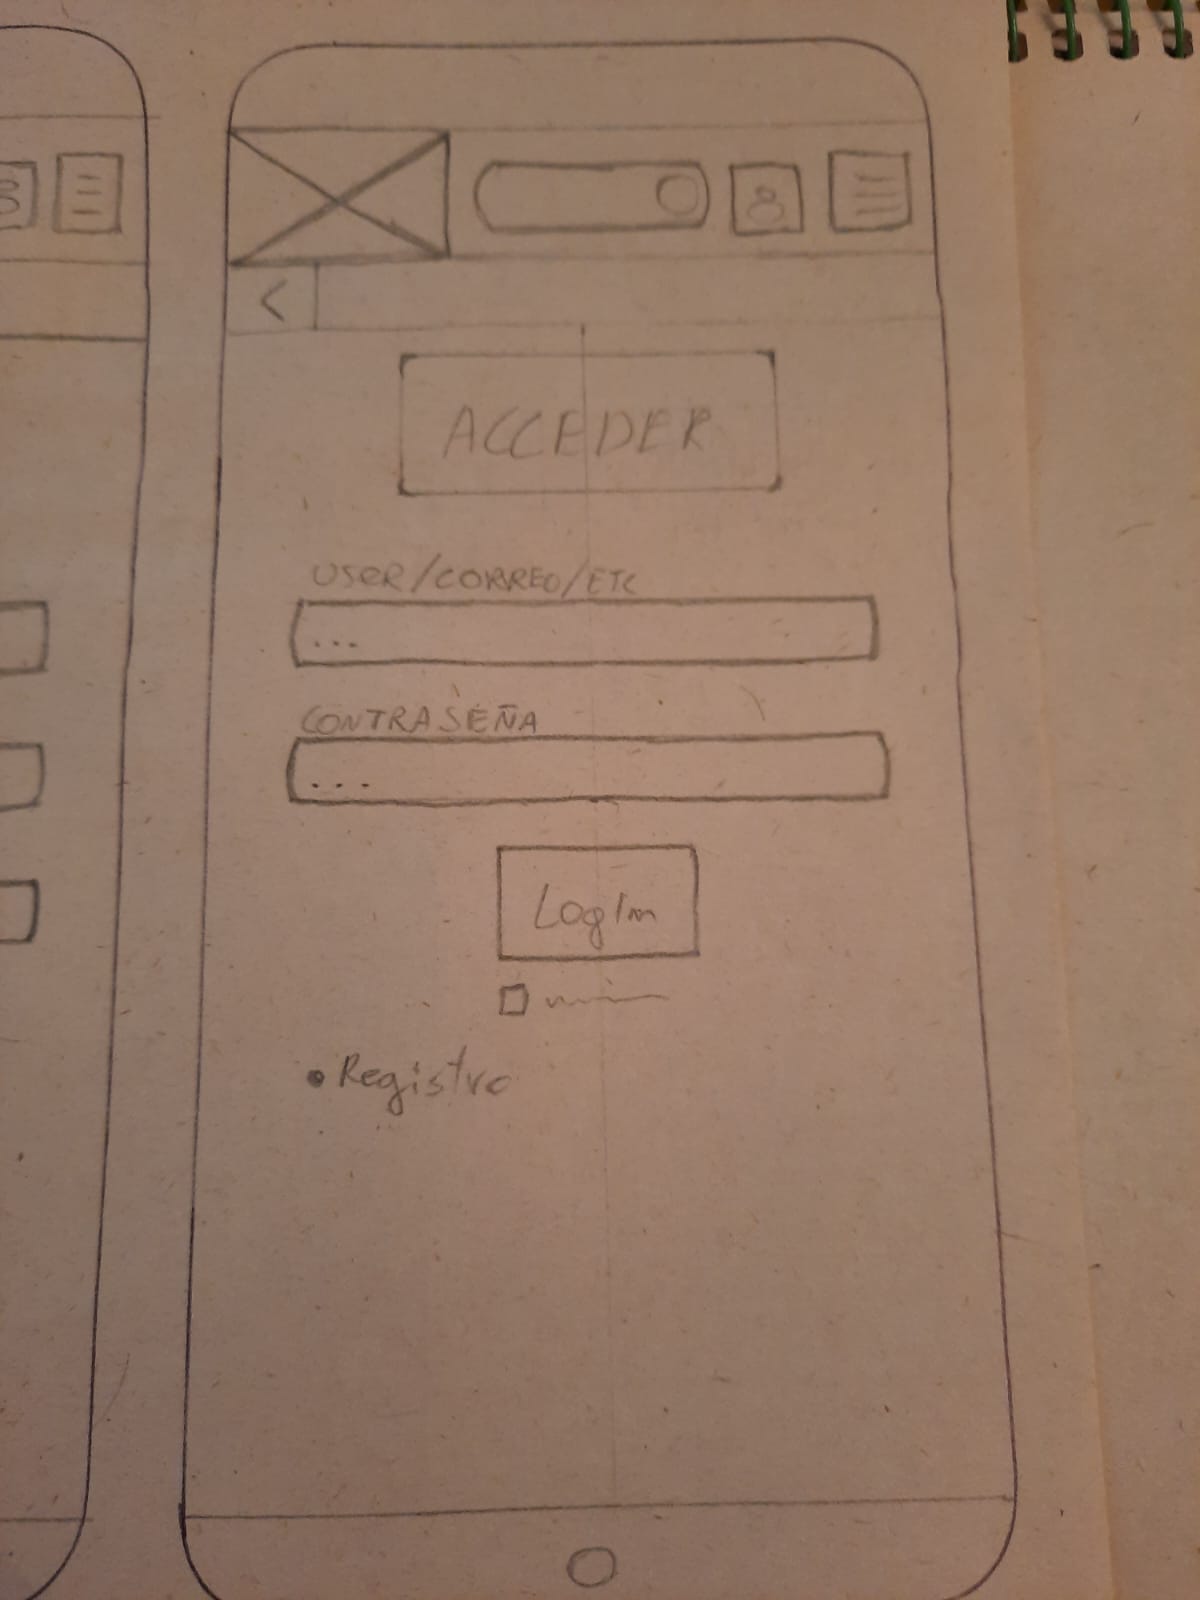 ACCEDER
USER/CORREO/ETC
...
CONTRASEÑA
...
LogIn
• Registro